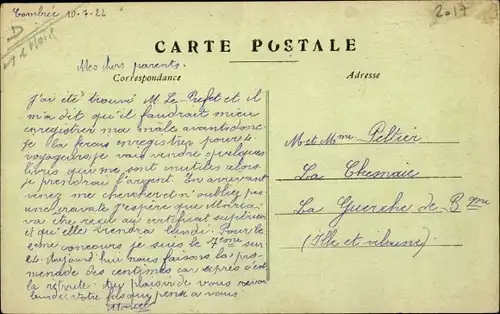 Combrée 10-7-22
2017
CARTE POSTALE
Mes chers parents.
Correspondance
Adresse
J'ai été trouvé M. Le Préfet et il
m'a dit qu'il faudrait mieu
enregistrer ma male avant donc
je la ferais enregistrer pour 4
voyageurs, je vais vendre quelques
livres qui me sont inutiles alors
je prendrai l'argent. En arrivant
venez me chercher et n'oubliez pas
J'espère que Maria
va être reçu au certificat supérieur
et qu'elle viendra lundi. Pour le
2ème concours je suis le 7ème sur
24. Aujourd'hui nous faisons la pro-
menade des centimes car après c'est
la retraite. Au plaisir de vous revoir
lundi votre fils qui pense a vous
M et Mme Peltier
La Chesnaie
La Guerche de B gne
(Ille et vilaine)